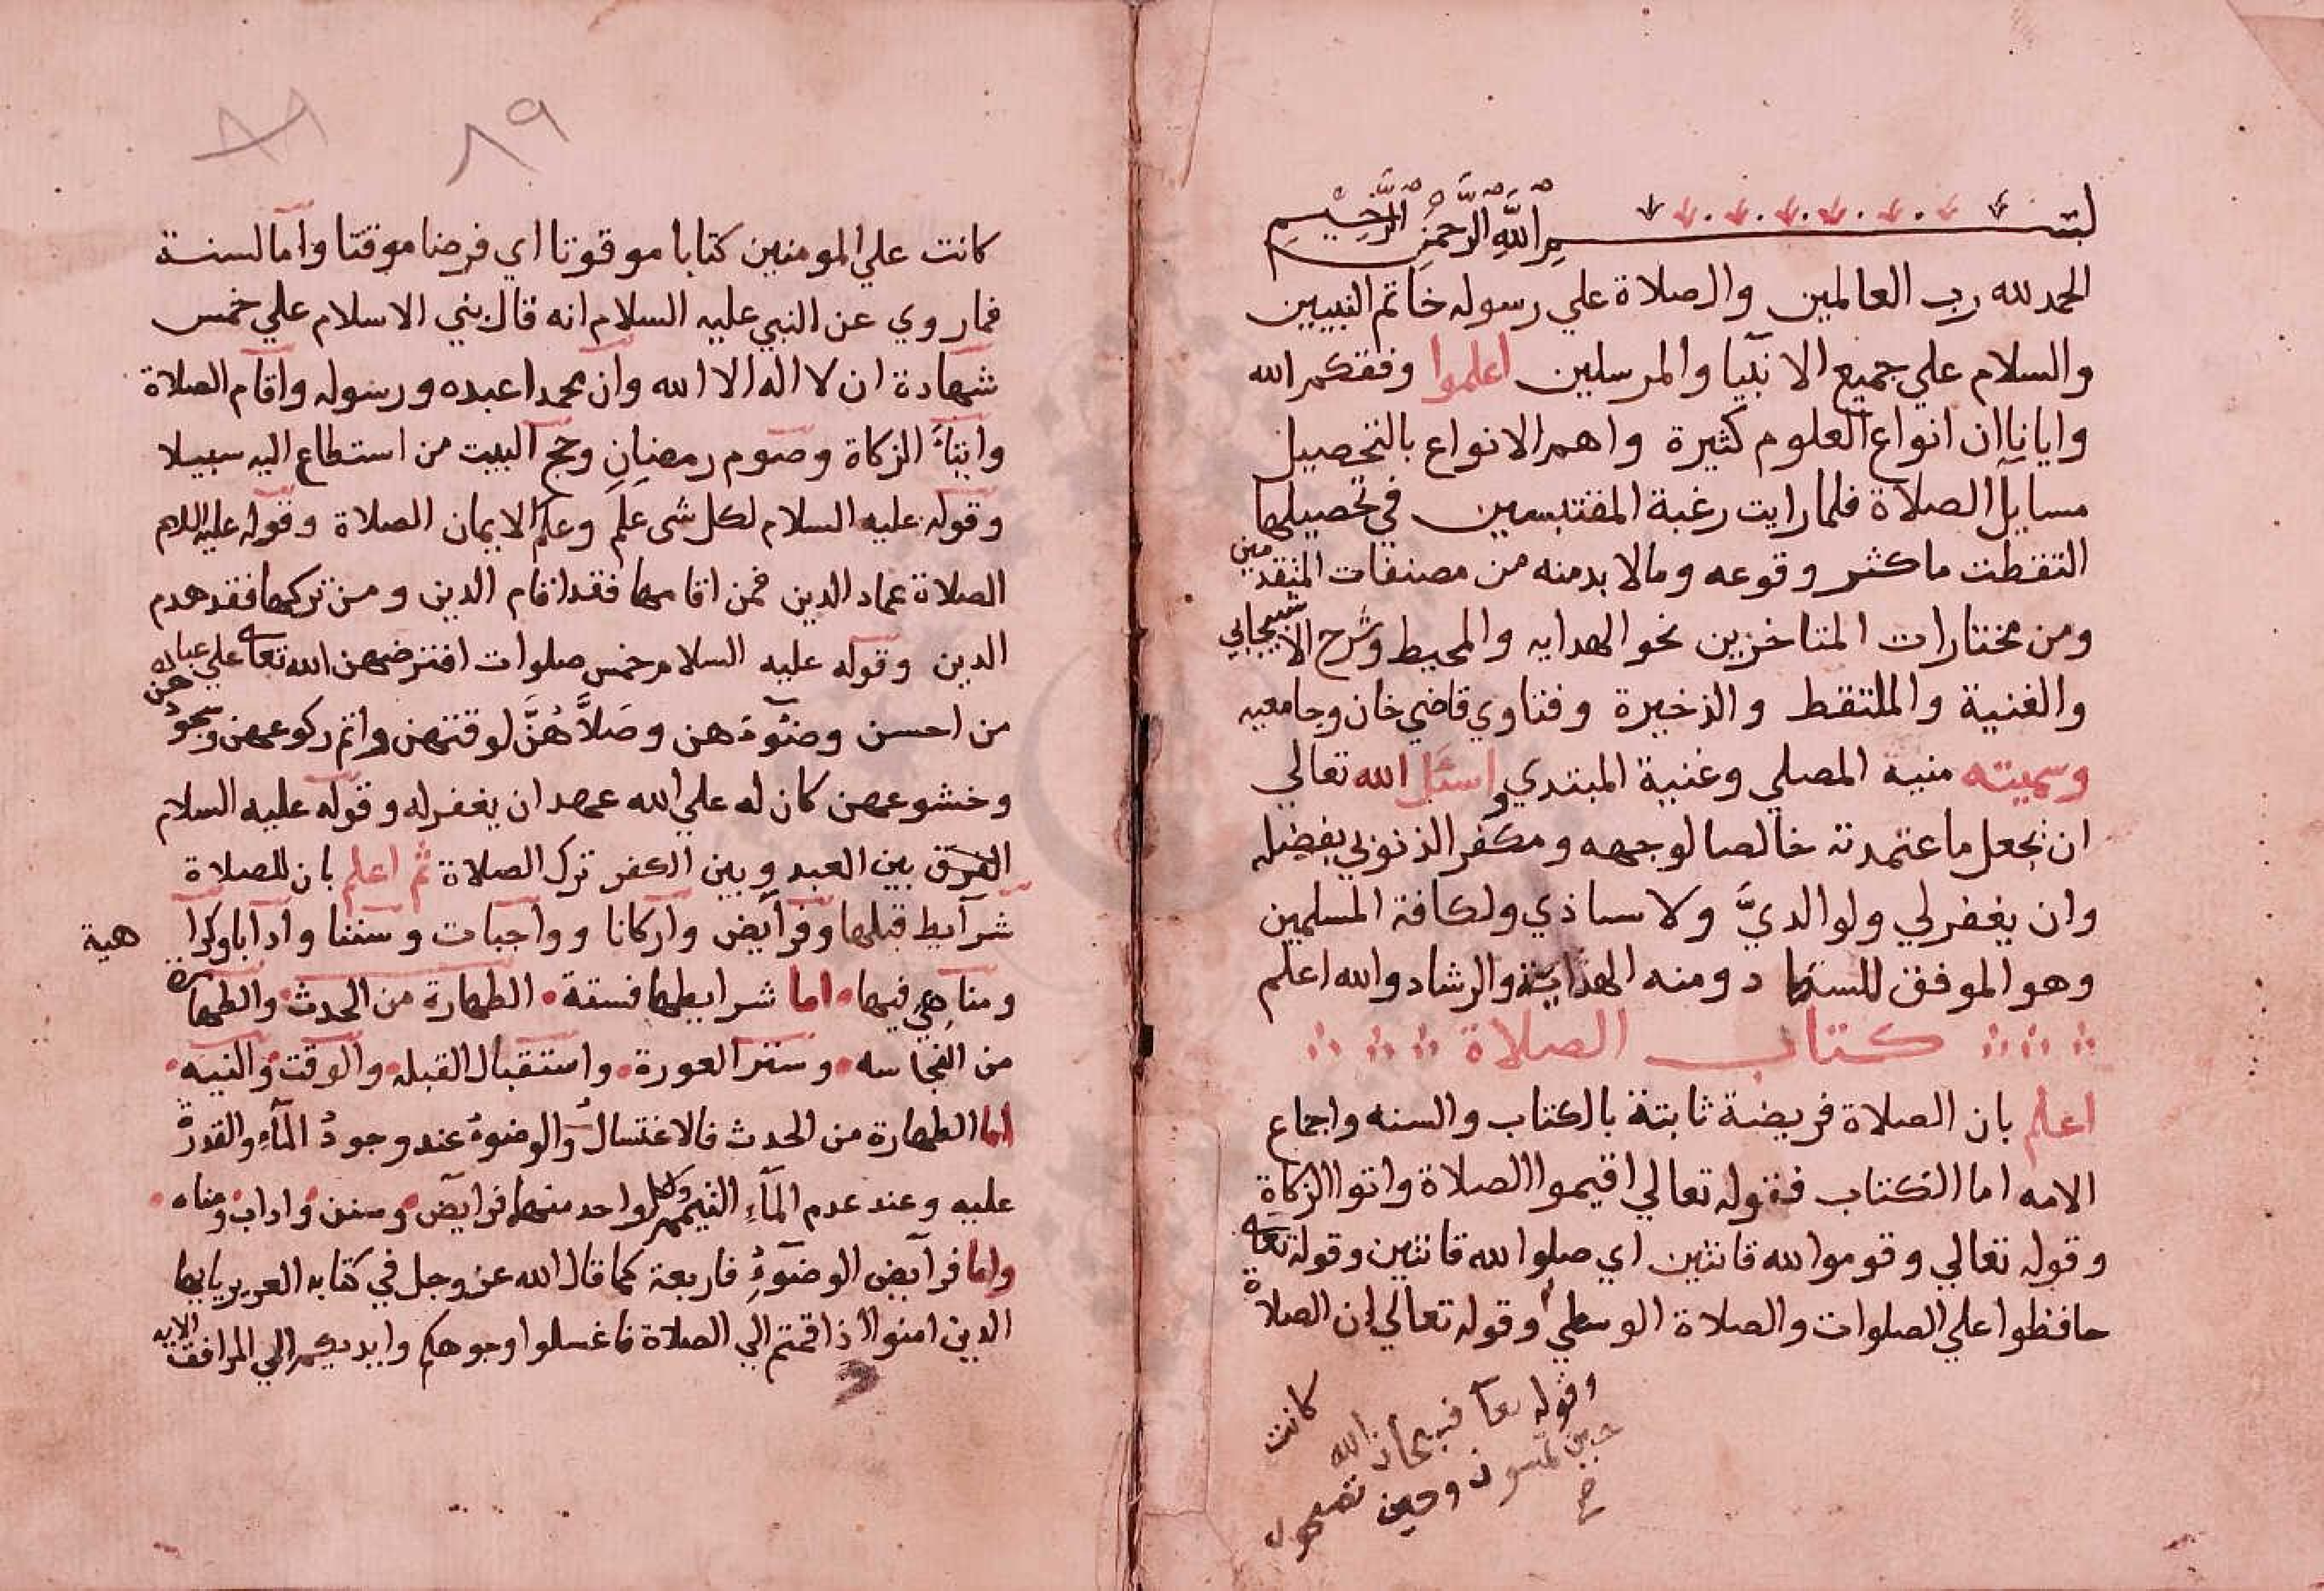 بسم الله الرحمن الرحيم
الحمد لله رب العالمين والصلاة علي رسوله خاتم النبيين
والسلام علي جميع الانبيا والمرسلين اعلموا وفقكم الله
وايانا ان انواع العلوم كثيرة واهم الانواع بالتحصيل
مسايل الصلاة فلما رايت رغبة المقتبسين في تحصيلها
التقطت ما كثر وقوعه وما لا بد منه من مصنفات المتقدمين
ومن مختارات المتاخرين نحو الهدايه والمحيط وشرح الاسبيجابي
والغنية والملتقط والذخيرة وفتاوي قاضي خان وجامعيه
وسميته منية المصلي وغنية المبتدي واسئل الله تعالي
ان يجعل ما عتمدته خالصا لوجهه ومكفر الذنوبي بفضله
وان يغفر لي ولوالديَّ ولاستاذي ولكافة المسلمين
وهو الموفق للسداد ومنه الهداية والرشاد والله اعلم
كتاب الصلاة
اعلم بان الصلاة فريضة ثابتة بالكتاب والسنه واجماع
الامه اما الكتاب فقوله تعالي اقيموا الصلاة واتوا الزكاة
وقوله تعالي وقوموا لله قانتين اي صلوا لله قانتين وقوله تعالى
حافظوا علي الصلوات والصلاة الوسطي وقوله تعالي ان الصلاة
كانت
وقوله تعا فسبحان الله
حين تمسون وحين تصبحون
صح
٨٩
كانت علي المومنين كتابا موقوتا اي فرضا موقتا واما السنة
فما روي عن النبي عليه السلام انه قال بني الاسلام علي خمس
شهادة ان لا اله الا الله وان محمدا عبده ورسوله واقام الصلاة
وايتاء الزكاة وصوم رمضان وحج البيت من استطاع اليه سبيلا
وقوله عليه السلام لكل شى علم وعلم الايمان الصلاة وقوله عليه السلام
الصلاة عماد الدين فمن اقامها فقد اقام الدين ومن تركها فقد هدم
الدين وقوله عليه السلام خمس صلوات افترضهن الله تعالى علي عباده
من احسن وضوءهن وصلاَّهُنَّ لوقتهن واتم ركوعهن وسجودهن
وخشوعهن كان له علي الله عهد ان يغفر له وقوله عليه السلام
الفرق بين العبد وبين الكفر ترك الصلاة ثم اعلم بان للصلاة
شرايط قبلها وفرايض واركانا وواجبات وسننا وادابا وكراهية
ومناهي فيها اما شرايطها فستة الطهارة من الحدث والطهارة
من النجاسه وستر العورة واستقبال القبله والوقت والنيه
اما الطهارة من الحدث فالاغتسال والوضوء عند وجود الماء والقدرة
عليه وعند عدم الماء التيمم ولكل واحد منها فرايض وسنن واداب ومناه
واما فرايض الوضوء فاربعة كما قال الله عز وجل في كتابه العزيز يايها
الذين امنوا اذا قمتم الي الصلاة فاغسلوا وجوهكم وايديكم الي المرافق الايه